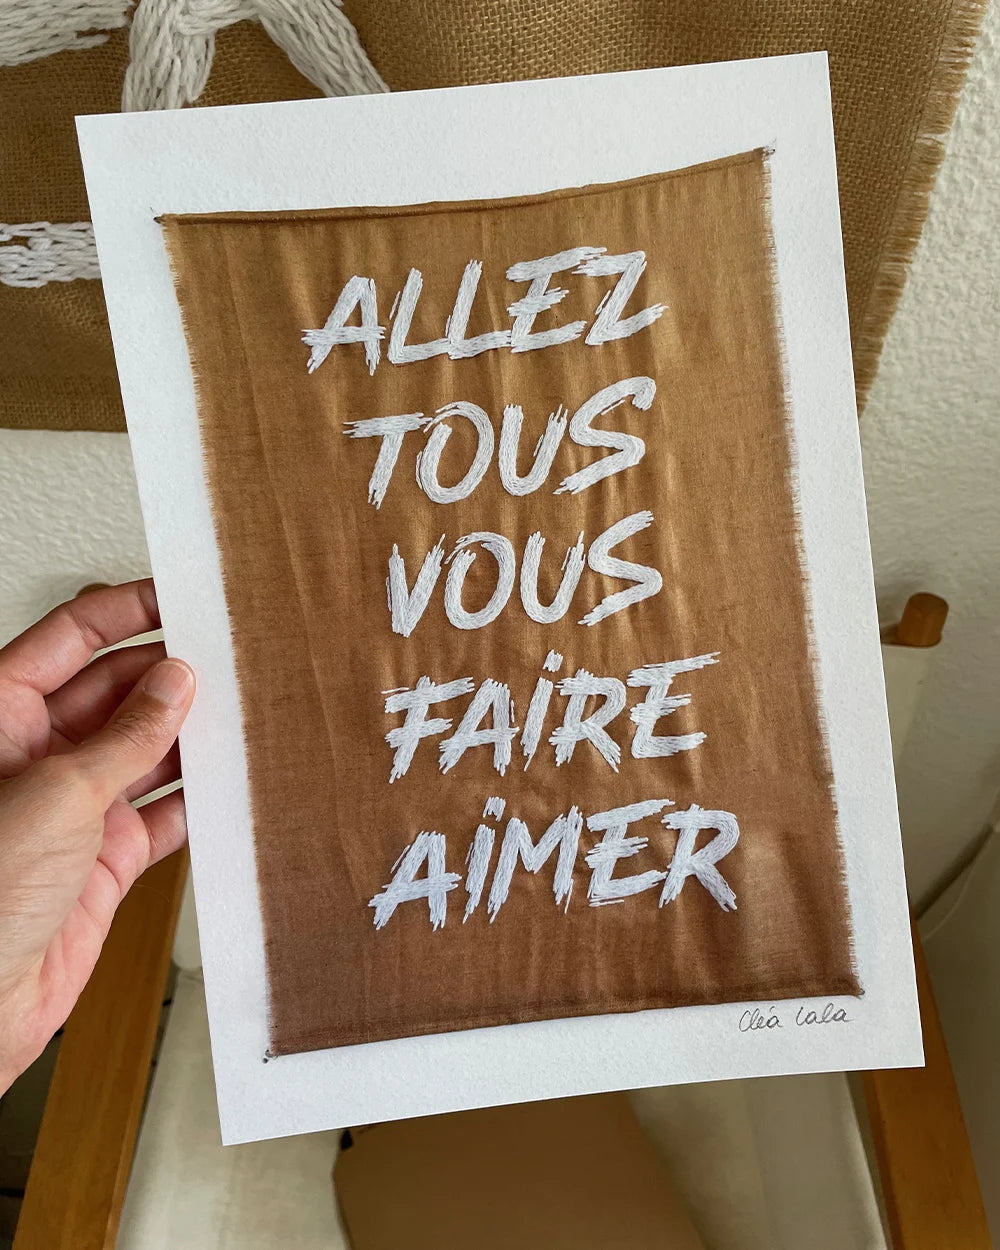 ALLEZ
TOUS
VOUS
FAiRE
AiMER
Cléa Lala